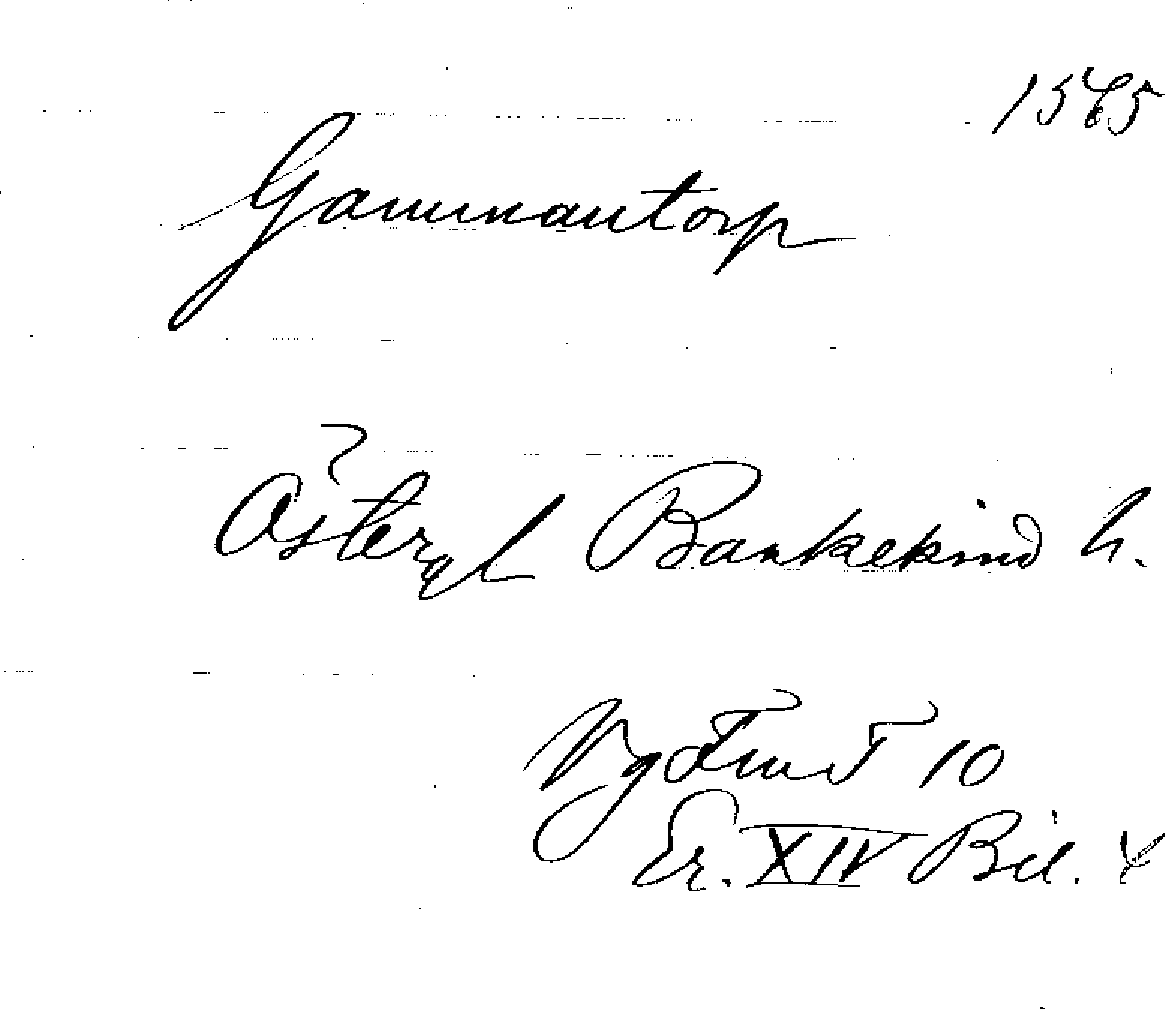 1545
Gammantorp
Östergl Bankekind h.
Vg 10
Er. XIV Bil. 4